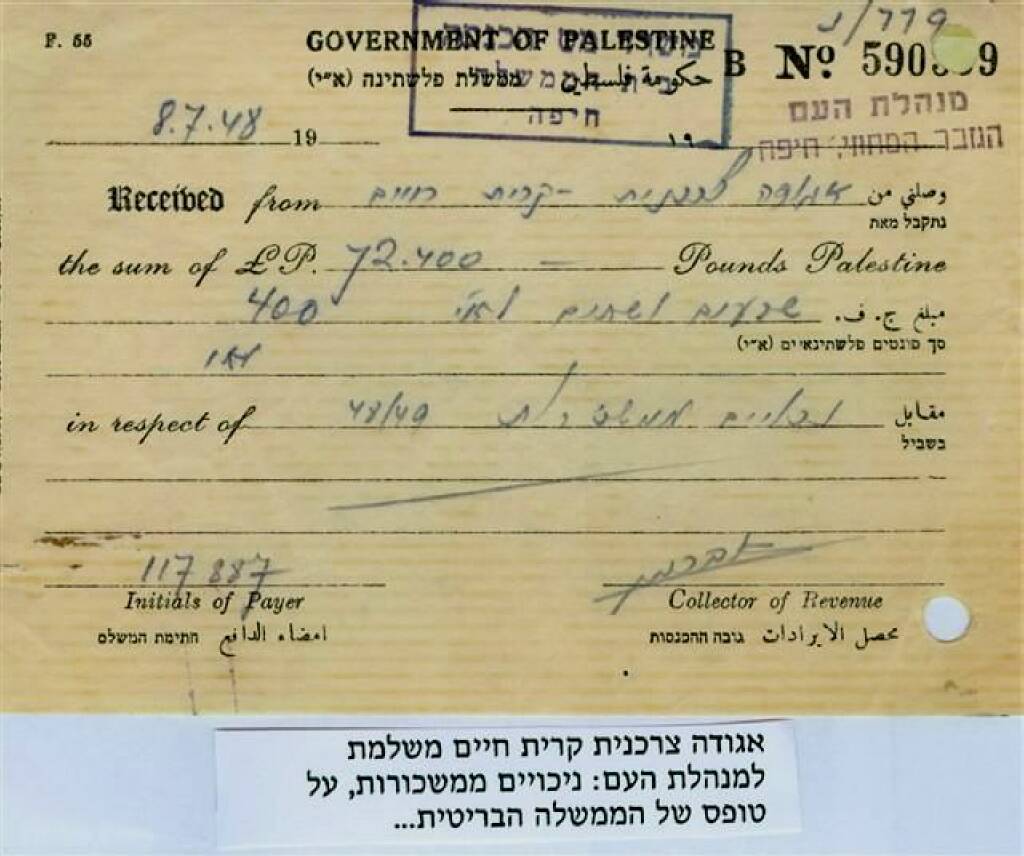 נ/779
F. 55
GOVERNMENT OF PALESTINE
B Nº 590 9
حكومة فلسطين ממשלת פלשתינה (א״י)
חיפה
מנהלת העם
הגזבר המחוזי, חיפה
8.7.48 19 ١٩
Received from אגודה צרכנית - קרית חיים وصلني من
נתקבל מאת
the sum of £P. 72.400 — Pounds Palestine
400 שבעים ושתים לא״י مبلغ ج. ف.
סך פונטים פלשתינאיים (א״י)
in respect of 48/49 נכויים ממשכורות مقابل
בשביל
117887
Initials of Payer Collector of Revenue
חתימת המשלם امضاء الدافع גובה ההכנסות محصل الايرادات
אגודה צרכנית קרית חיים משלמת
למנהלת העם: ניכויים ממשכורות, על
טופס של הממשלה הבריטית...